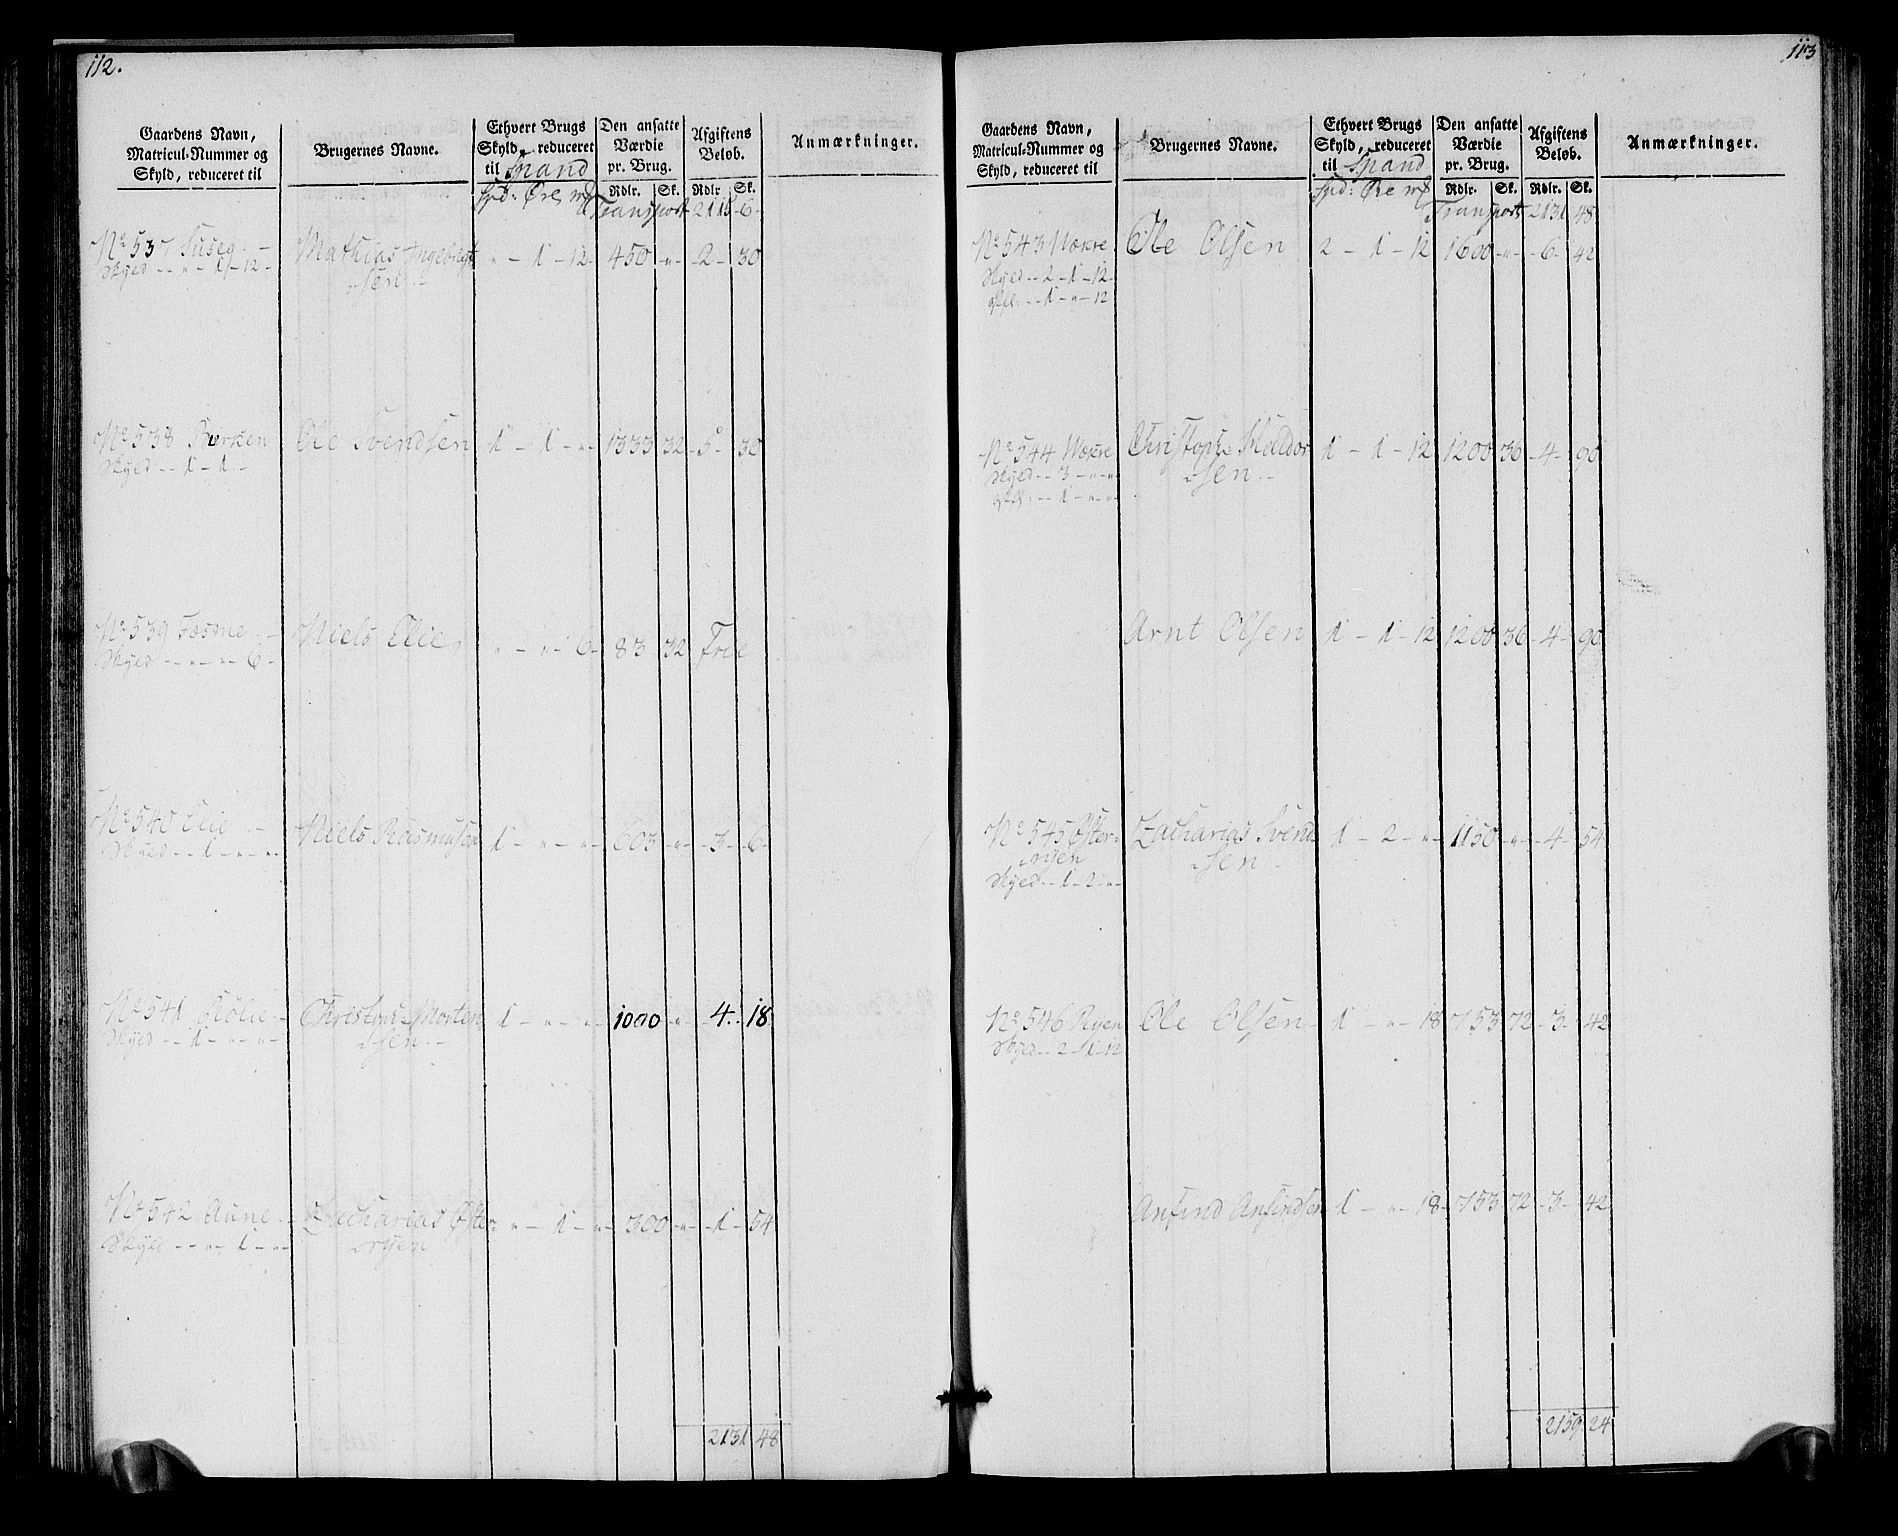 112.
Gaardens Navn, Matricul-Nummer og Skyld, reduceret til
Brugernes Navne.
Ethvert Brugs Skyld, reduceret til Spand
Den ansatte Værdie pr. Brug.
Afgiftens Beløb.
Anmærkninger.
Spd: Øre mk
Rdlr. Sk. Rdlr. Sk.
Transport 2115 - 6 -
No 537 Tuseg - Mathias Ingebrigt „ - 1 - 12 - 450 - „ - 2 - 30
Skyld - - „ - 1 - 12 - sen -
No 538 Burken Ole Svendsen 1 - 1 - „ - 1333 32 - 5 - 30
Skyld - - 1 - 1 -
No 539 Fosme - Niels Elie „ - „ - 6 - 83 32 Frie
Skyld - - „ - „ - 6 -
No 540 Elie - Niels Rasmusen 1 - „ - „ - 603 - „ - 3 - 6 -
Skyld - - 1 - „ - „ -
No 541 Christopher Morten 1 - „ - „ - 1000 - „ - 4 - 18
Skyld - - 1 - „ - „ - sen -
No 542 Aune - Zacharias Øster „ - 1 - „ - 300 - „ - 1 - 54
Skyld - - „ - 1 - „ - ryen
2131 48
113
Gaardens Navn, Matricul-Nummer og Skyld, reduceret til
Brugernes Navne.
Ethvert Brugs Skyld, reduceret til Spand
Den ansatte Værdie pr. Brug.
Afgiftens Beløb.
Anmærkninger.
Spd: Øre mk
Rdlr. Sk. Rdlr. Sk.
Transport 2131 48
No 543 Nokre Ole Olsen 2 - 1 - 12 1600 - „ - 6 - 42
Skyld - - 2 - 1 - 12 -
- - 1 - „ - 12
No 544 Nokre Christopher Haldor 1 - 1 - 12 1200 36 - 4 - 90
Skyld - - 3 - „ - „ sen -
- - 1 - „ - „
Arnt Olsen 1 - 1 - 12 1200 36 - 4 - 90
No 545 Øster= Zacharias Svend 1 - 2 - „ - 1150 - „ - 4 - 54
ryen sen -
Skyld - - 1 - 2 - „
No 546 Ryen Ole Olsen - 1 - „ - 18 - 753 72 - 3 - 42
Skyld - - 2 - 1 - 12
Anfind Anfindsen 1 - „ - 18 - 753 72 - 3 - 42
2159 24